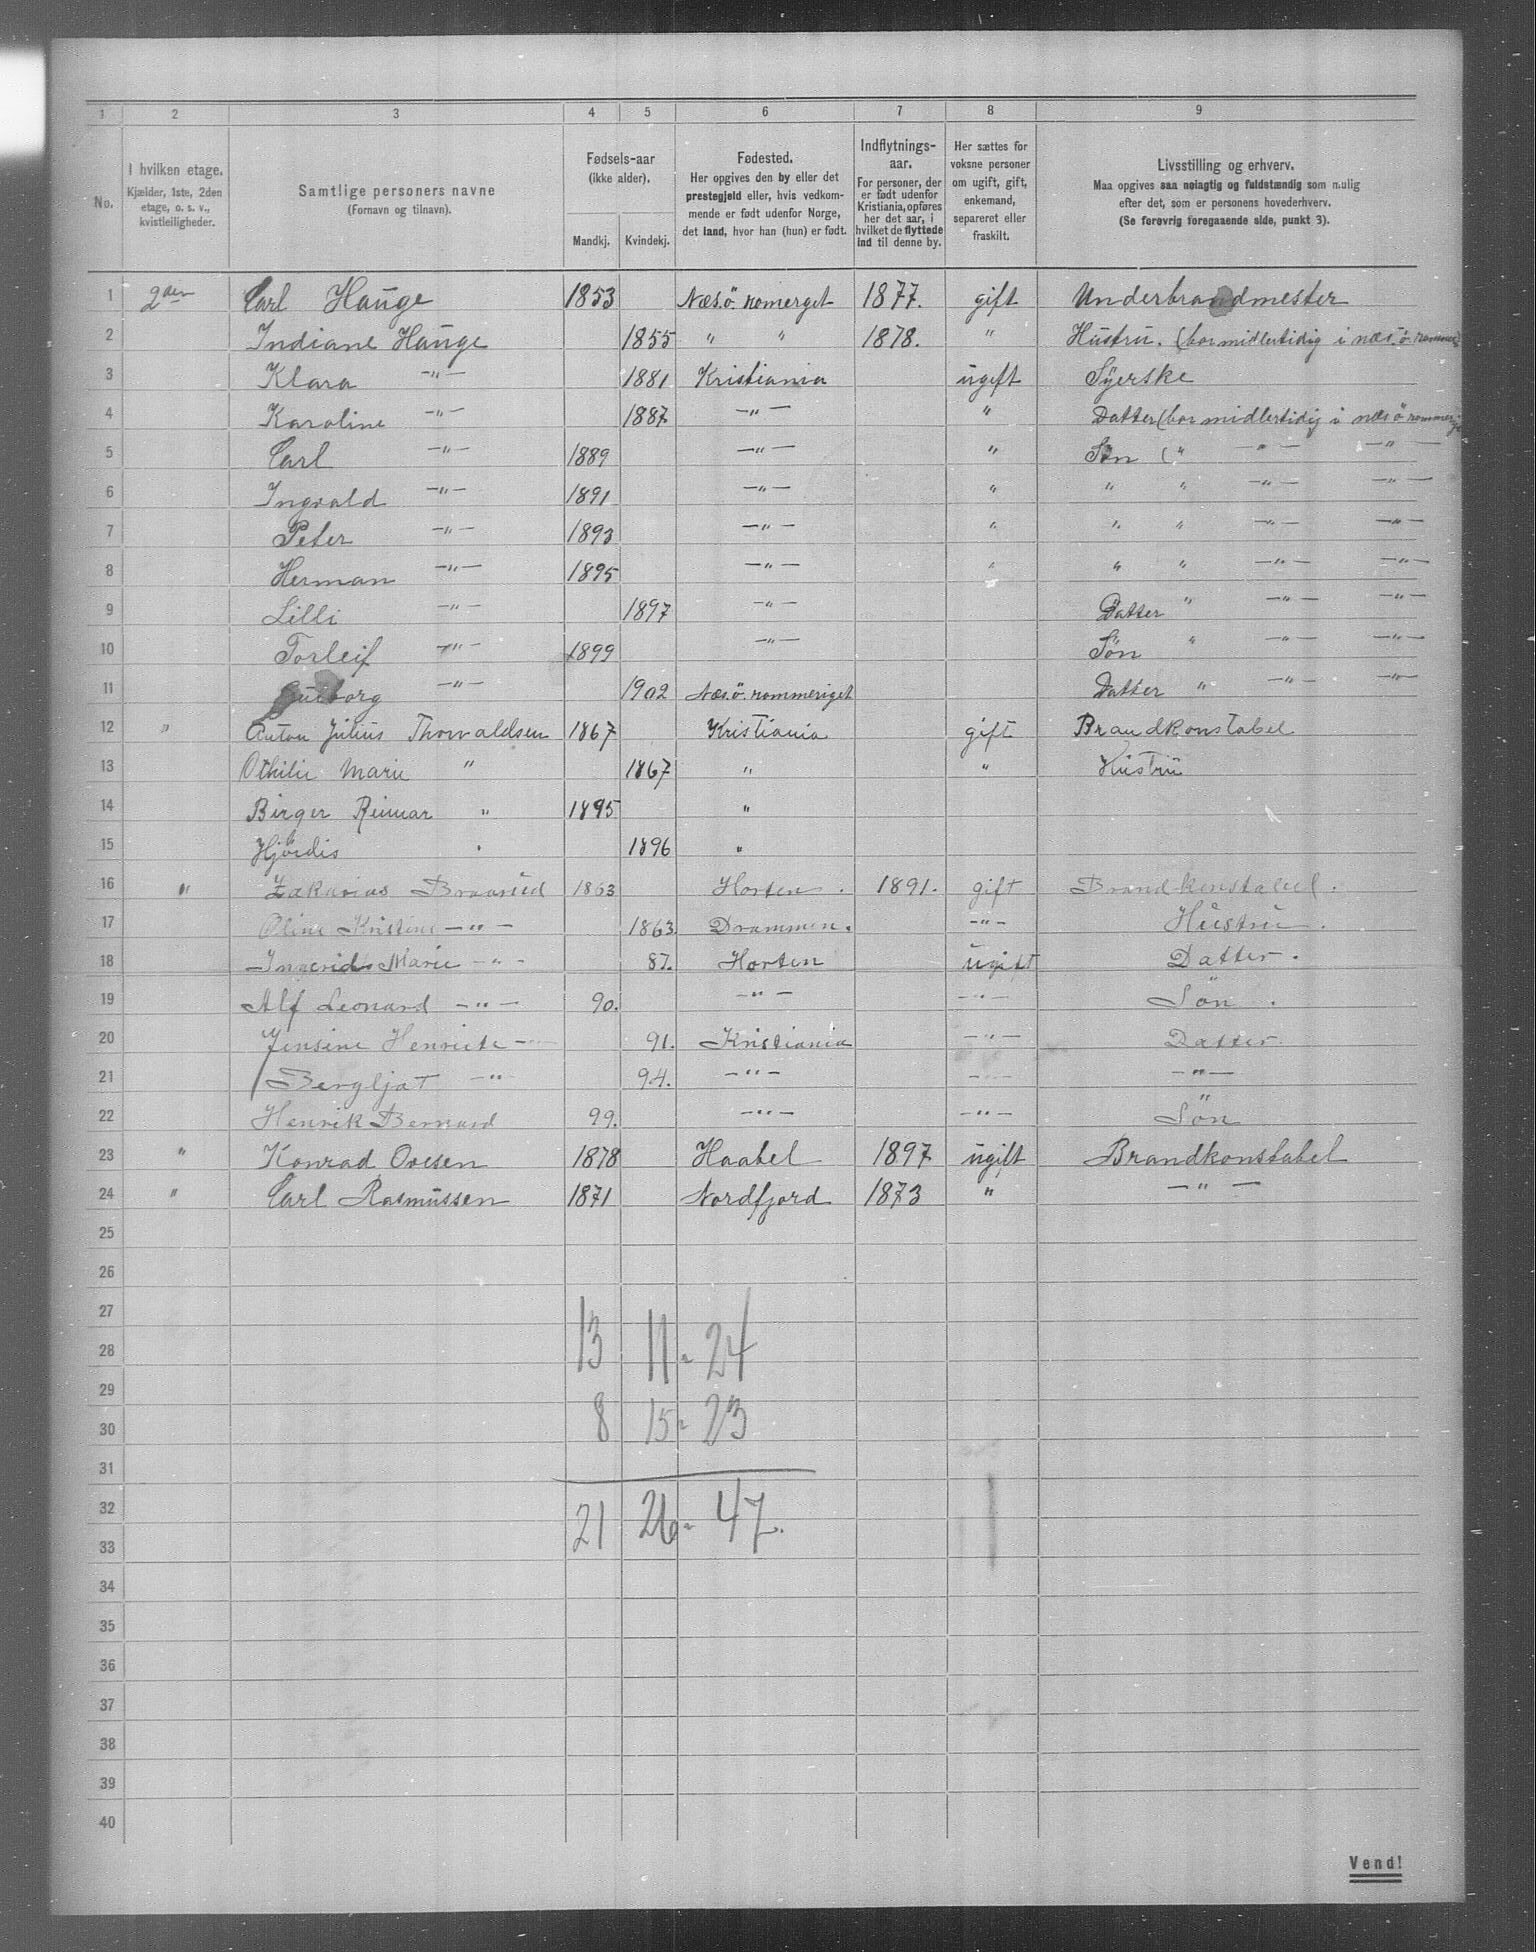 1 2 3 4 5 6 7 8 9
No.
I hvilken etage.
Kjælder, 1ste, 2den
etage, o. s. v.,
kvistleiligheder.
Samtlige personers navne
(Fornavn og tilnavn).
Fødsels-aar
(ikke alder).
Mandkj. Kvindekj.
Fødested.
Her opgives den by eller det
prestegjeld eller, hvis vedkom-
mende er født udenfor Norge,
det land, hvor han (hun) er født.
Indflytnings-
aar.
For personer, der
er født udenfor
Kristiania, opføres
her det aar, i
hvilket de flyttede
ind til denne by.
Her sættes for
voksne personer
om ugift, gift,
enkemand,
separeret eller
fraskilt.
Livsstilling og erhverv.
Maa opgives saa nøiagtig og fuldstændig som mulig
efter det, som er personens hovederhverv.
(Se forøvrig foregaaende side, punkt 3).
1 2den Carl Hauge 1853 Næs. ö. romerget 1877. gift Underbrandmester
2 Indiane Hauge 1855 " " 1878. " Hustru. (bor midlertidig i næs. ö. rommer
3 Klara —"— 1881 Kristiania ugift Syerske
4 Karoline —"— 1887 —"— " Datter (bor midlertidig i næs ö rommerige
5 Carl —"— 1889 —"— " Søn (" —"— —"—
6 Ingvald —"— 1891 —"— " " " —"— —"—
7 Peter —"— 1893 —"— " " " —"— —"—
8 Herman —"— 1895 —"— " " " —"— —"—
9 Lilli —"— 1897 —"— Datter " —"— —"—
10 Torleif —"— 1899 —"— Søn " —"— —"—
11 —"— 1902 Næs. ö. rommeriget Datter " —"— —"—
12 " Anton Julius Thorvaldsen 1867 Kristiania gift Brandkonstabel
13 Othilie Marie " 1867 " " Hustru
14 Birger Reimar " 1895 "
15 Hjördis " 1896 "
16 " Zakarias Braarud 1863 Horten. 1891. gift Brandkonstabel.
17 Oline Kristine —"— 1863. Drammen. —"— Hustru.
18 Ingerid Marie —"— 87. Horten ugift Datter.
19 Alf Leonard —"— 90. —"— —"— Søn.
20 Jensine Henriete —"— 91. Kristiania —"— Datter
21 Bergljot —"— 94. —"— —"— —"—
22 Henrik Bernard 99. —"— —"— Søn
23 " Konrad Ovesen 1878 Haabel 1897 ugift Brandkonstabel
24 " Carl Rasmussen 1871 Nordfjord 1873 " —"—
25
26
27
28 13 11 = 24
29
30 8 15 = 23
31
32
33 21 26 = 47.
34
35
36
37
38
39
40
Vend!